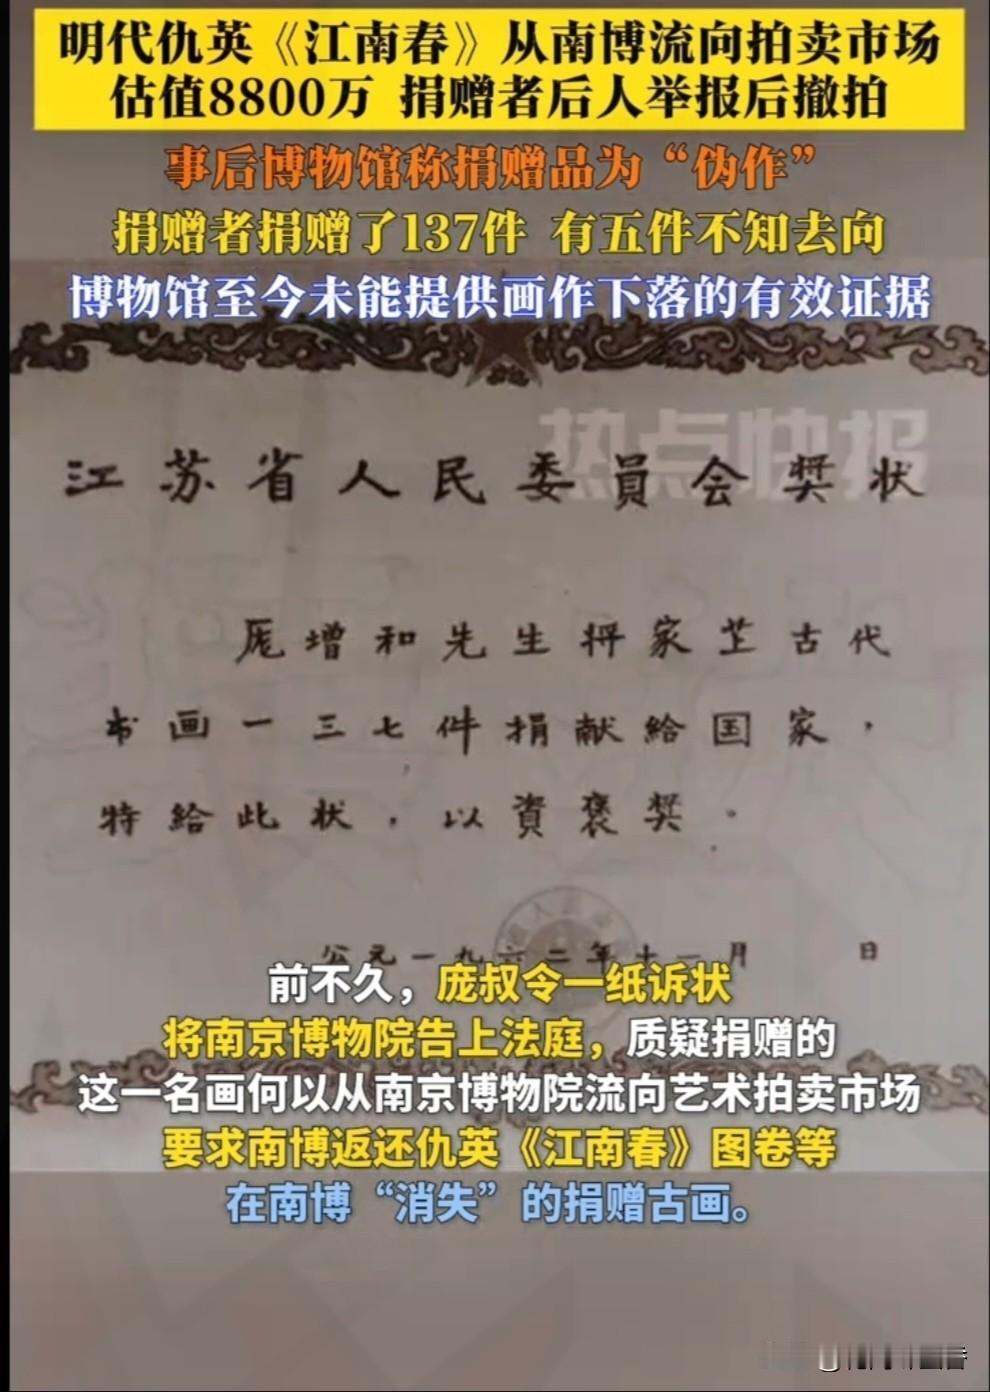 明代仇英《江南春》从南博流向拍卖市场
估值8800万 捐赠者后人举报后撤拍
事后博物馆称捐赠品为“伪作”
捐赠者捐赠了137件 有五件不知去向
博物馆至今未能提供画作下落的有效证据
热点快报
江苏省人民委員会奨状
庞增和先生将家芷古代
书画一三七件捐献給国家，
特給此状，以資褒奨。
公元一九六二年十一月 日
前不久，庞叔令一纸诉状
将南京博物院告上法庭，质疑捐赠的
这一名画何以从南京博物院流向艺术拍卖市场
要求南博返还仇英《江南春》图卷等
在南博“消失”的捐赠古画。